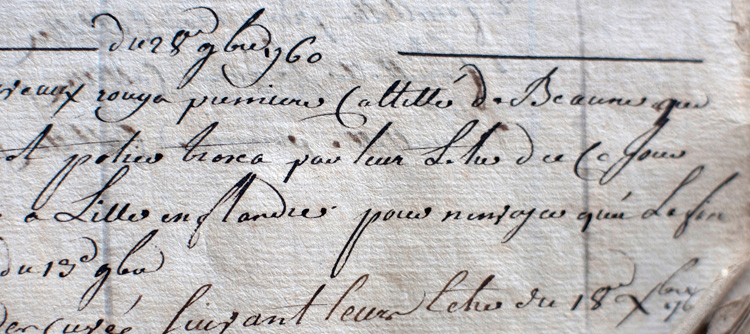 du 28e 9bre 1760
vieux rouge premiere Callité de Beaune que
et par leur Lettre de Ce Jour
a Lille en flandre pour n'envoyer qu'a La fin
du 13e 9bre
suivant leur Lettre du 18e Xbre 176